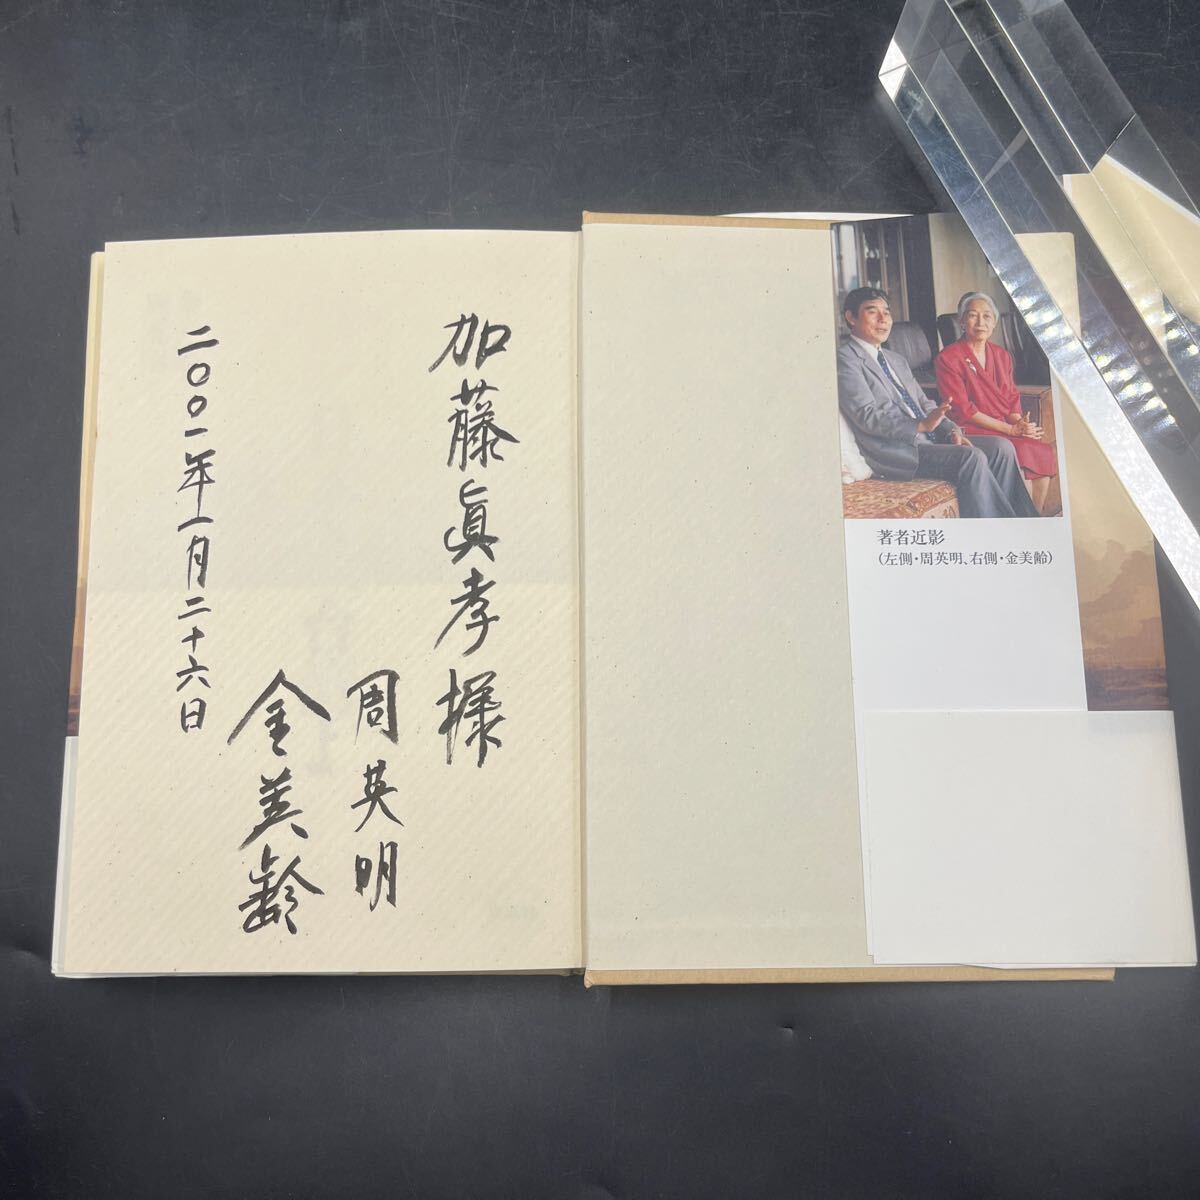 加藤眞孝様
周英明
金美齢
二〇〇一年一月二十六日
著者近影
(左側・周英明、右側・金美齢)